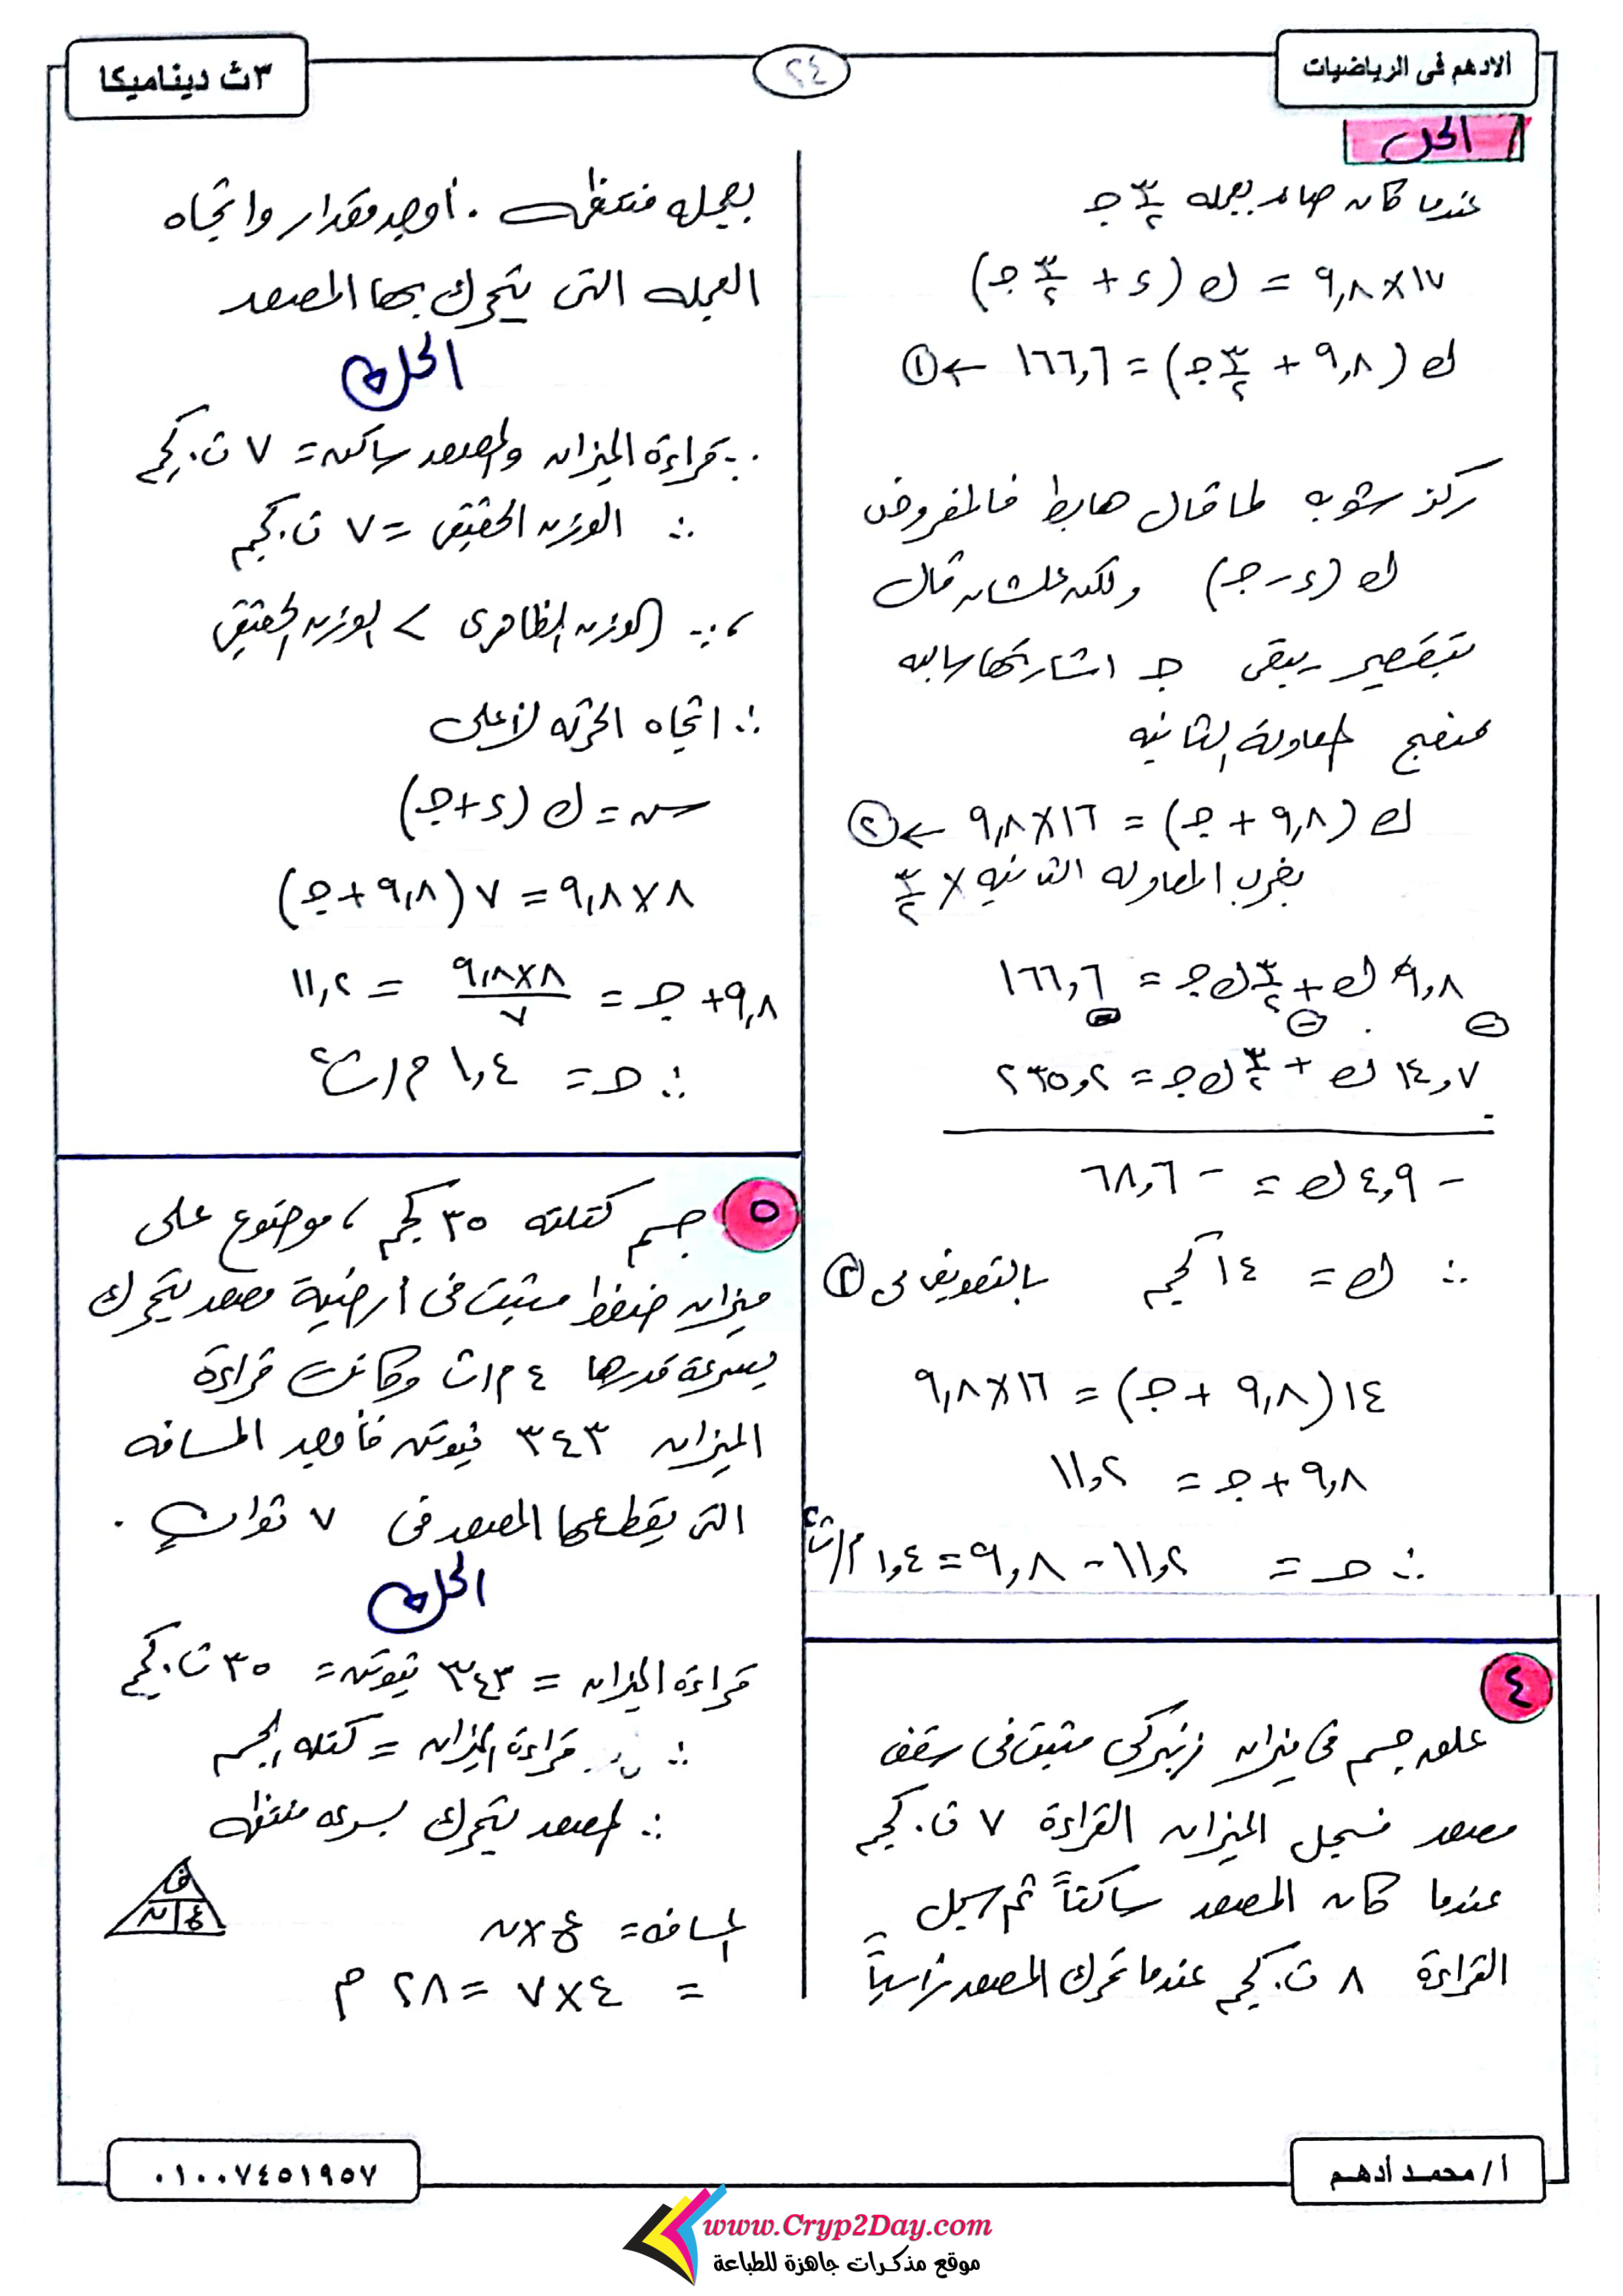 الادهم فى الرياضيات
٢٤
٣ث ديناميكا
الحل
عندما كان صاعد بعجلة ٣/٢ ج
١٧×٩,٨ = ك (د + ٣/٢ ج)
ك (٩,٨ + ٣/٢ ج) = ١٦٦,٦ ← ①
ركز شويه لما قال هابط فالمفروض
ك (د - ج) ولكن علشان قال
بتقصير يبقى ج اشارتها سالبه
فتصبح المعادلة الثانيه
ك (٩,٨ + ج) = ١٦×٩,٨ ← ②
بضرب المعادله الثانيه × ٣/٢
٩,٨ ك + ٣/٢ ك ج = ١٦٦,٦
١٤,٧ ك + ٣/٢ ك ج = ٢٣٥,٢
- ٤,٩ ك = - ٦٨,٦
∴ ك = ١٤ كجم بالتعويض فى ②
١٤ (٩,٨ + ج) = ١٦×٩,٨
٩,٨ + ج = ١١,٢
∴ ج = ١١,٢ - ٩,٨ = ١,٤ م/ث٢
٤
علق جسم فى ميزان زنبركى مثبت فى سقف
مصعد فسجل الميزان القراءة ٧ ث.كجم
عندما كان المصعد ساكناً ثم سجل
القراءة ٨ ث.كجم عندما تحرك المصعد رأسياً
بعجلة منتظمه . أوجد مقدار واتجاه
العجله التى يتحرك بها المصعد
الحل
∵ قراءة الميزان والمصعد ساكن = ٧ ث.كجم
∴ الوزن الحقيقى = ٧ ث.كجم
، ∵ الوزن الظاهرى > الوزن الحقيقى
∴ اتجاه الحركه لأعلى
سہ = ك (د + ج)
٨×٩,٨ = ٧ (٩,٨ + ج)
٩,٨ + ج = ٨×٩,٨/٧ = ١١,٢
∴ ج = ١,٤ م/ث٢
٥ جسم كتلته ٣٥ كجم ، موضوع على
ميزان ضغط مثبت فى أرضية مصعد يتحرك
بسرعة قدرها ٤ م/ث وكانت قراءة
الميزان ٣٤٣ نيوتن فأوجد المسافه
التى يقطعها المصعد فى ٧ ثوانٍ .
الحل
قراءة الميزان = ٣٤٣ نيوتن = ٣٥ ث.كجم
∴ قراءة الميزان = كتله الجسم
∴ المصعد يتحرك بسرعه منتظمه
ف
ع ن
المسافه = ع × ن
= ٤×٧ = ٢٨ م
أ/ محمد أدهم
٠١٠٠٧٤٥١٩٥٧
www.Cryp2Day.com
موقع مذكرات جاهزة للطباعة